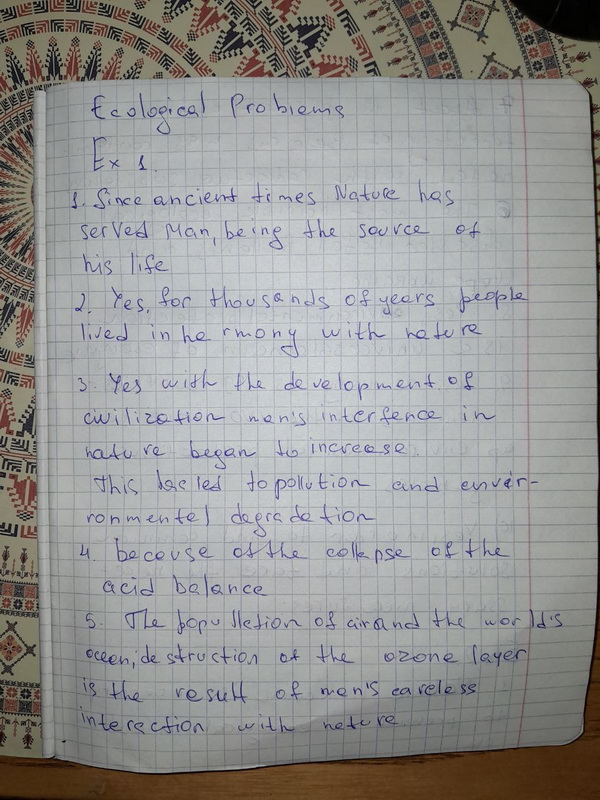 Ecological Problems
Ex 1.
1. Since ancient times Nature has
served Man, being the source of
his life
2. Yes, for thousands of years people
lived in harmony with nature
3. Yes with the development of
civilization men's interfence in
nature began to increase.
This has led to pollution and envir-
ronmental degradation
4. because of the collapse of the
acid balance
5. The popullation of air and the world's
ocean, destruction of the ozone layer
is the result of men's careless
interaction with nature